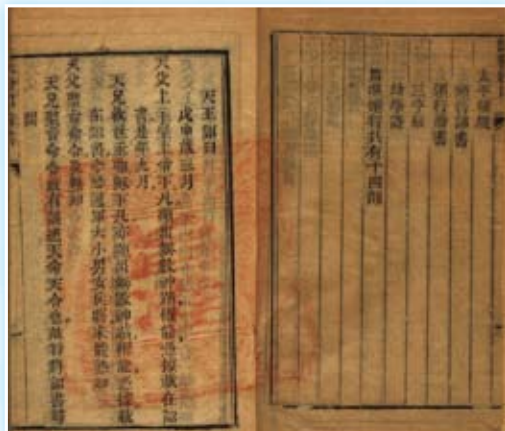 太平
頒行詔書
頒行曆書
三字經
幼學詩
旨準頒行共有十四部
天王詔曰
戊申歲三月
天父上主皇上帝下凡顯出無數神蹟權能憑據載在詔
書是年九月
天兄救世主耶穌下凡亦顯出無數神蹟權能憑據載
在詔書今恐通軍大小男女兵將未能熟知
天父聖旨命令及熟知
天兄聖旨命令致有誤逆天命天令也故特將詔書尋
閱